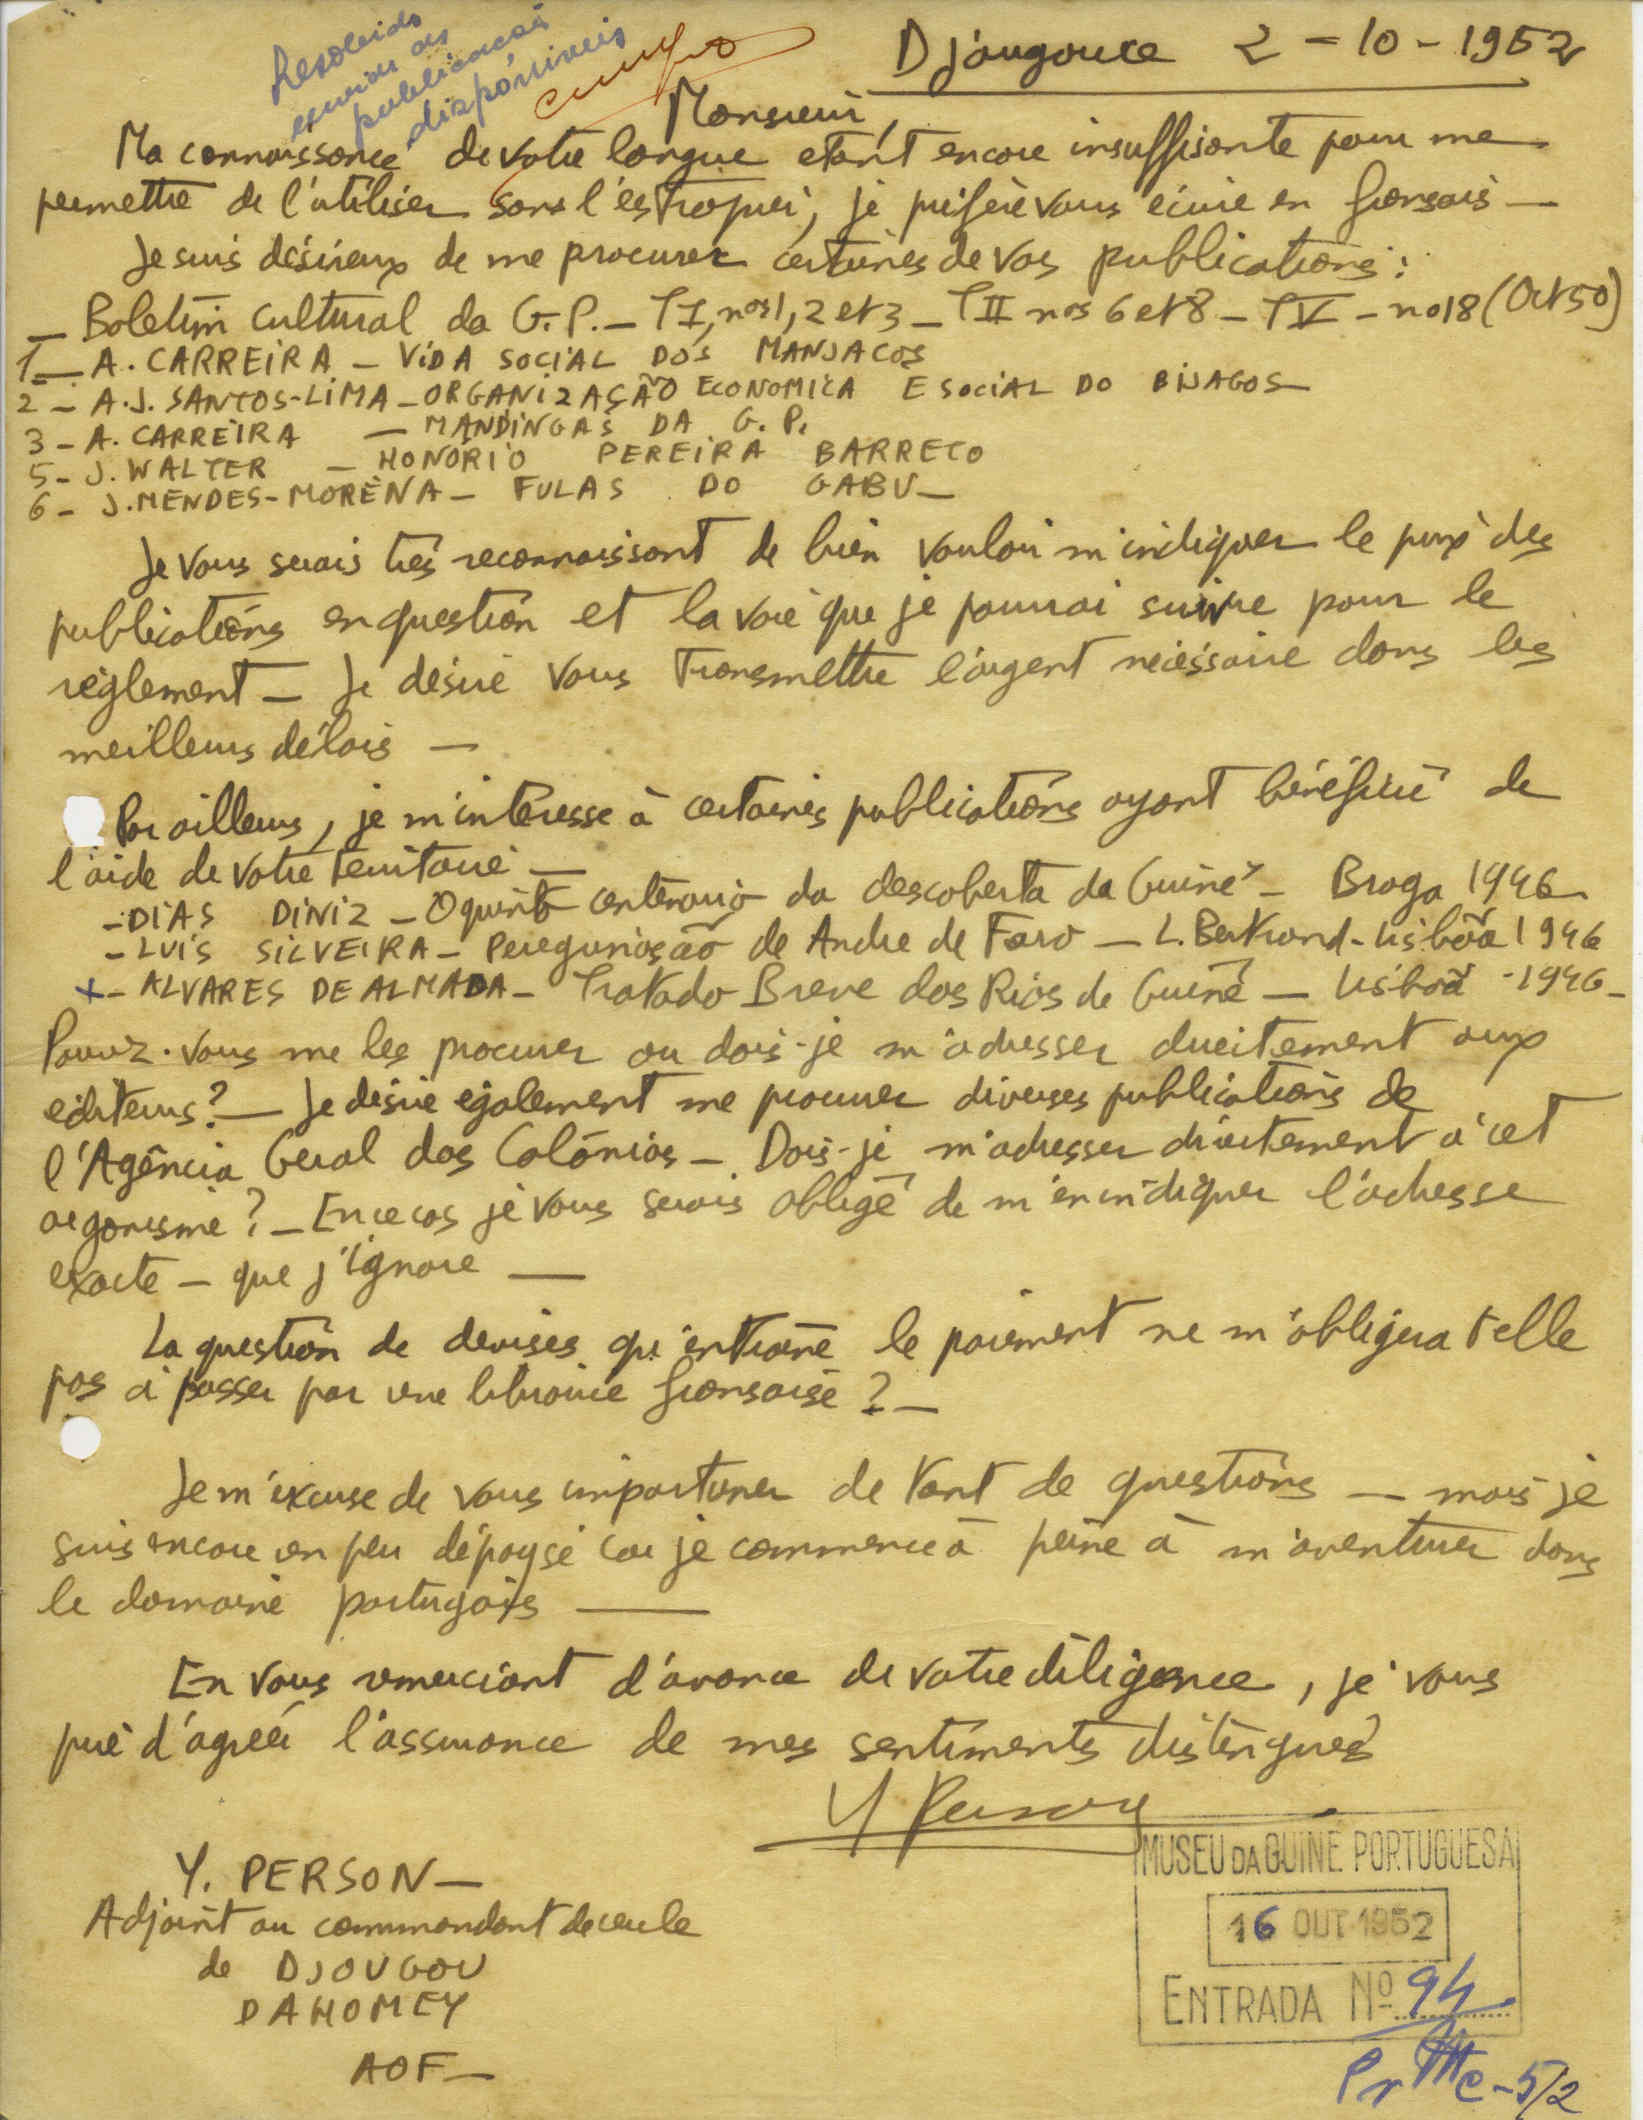 Resolvido
enviar as
publicações
disponíveis
Djougou le 2-10-1952
Monsieur,
Ma connaissance de votre langue etant encore insuffisante pour me
permettre de l'utiliser sans l'estropier, je préfère vous écrire en français —
Je suis désireux de me procurer certaines de vos publications :
— Boletim Cultural da G.P. — T I, nos 1, 2 et 3 — T II nos 6 et 8 — T V — no 18 (Oct 50)
1 — A. CARREIRA — VIDA SOCIAL DOS MANJACOS
2 — A.J. SANTOS-LIMA — ORGANIZAÇÃO ECONOMICA E SOCIAL DO BIJAGOS —
3 — A. CARREIRA — MANDINGAS DA G. P.
5 — J. WALTER — HONÓRIO PEREIRA BARRETO
6 — J. MENDES-MORENA — FULAS DO GABU —
Je vous serais très reconnaissant de bien vouloir m'indiquer le prix des
publications en question et la voie que je pourrai suivre pour le
règlement — Je désire vous transmettre l'argent nécessaire dans les
meilleurs délais —
Par ailleurs, je m'intéresse à certaines publications ayant bénéficié de
l'aide de votre territoire —
— DIAS DINIZ — O quinto centenario da descoberta da Guiné — Braga 1946
— LUIS SILVEIRA — Peregrinação de Andre de Faro — L. Bertrand — Lisbõa 1946
+ — ALVARES DE ALMADA — Tratado Breve dos Rios de Guiné — Lisboã - 1946 —
Pouvez-vous me les procurer ou dois-je m'adresser directement aux
editeurs ? — Je désire également me procurer diverses publications de
l'Agência Geral das Colónias — Dois-je m'adresser directement à cet
organisme ? — En ce cas je vous serais obligé de m'en indiquer l'adresse
exacte — que j'ignore —
La question de devises qu'entraine le paiement ne m'obligera t elle
pas à passer par une librairie française ? —
Je m'excuse de vous importuner de tant de questions — mais je
suis encore un peu dépaysé car je commence à peine à m'aventurer dans
le domaine portugais —
En vous remerciant d'avance de votre diligence, je vous
prie d'agréer l'assurance de mes sentiments distingués
Y Person
Y. PERSON —
Adjoint au commandant de cercle
de DJOUGOU
DAHOMEY
AOF —
MUSEU DA GUINÉ PORTUGUESA
16 OUT 1952
ENTRADA Nº 94